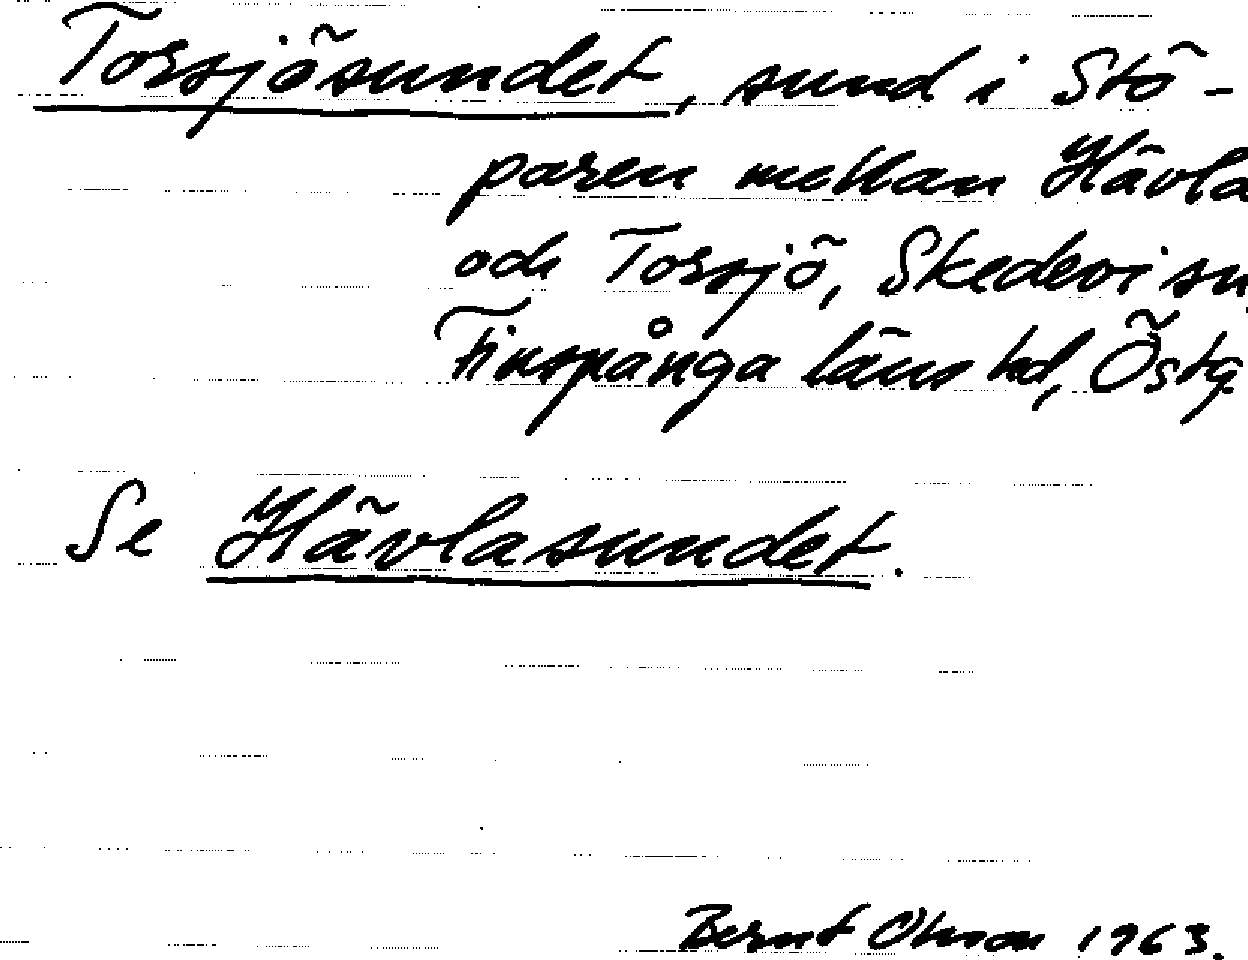 Torsjösundet, sund i Stö-
paren mellan Hävla
och Torsjö, Skedevi sn,
Finspånga läns hd, Östg.
Se Hävlasundet.
Bernt Olsson 1963.